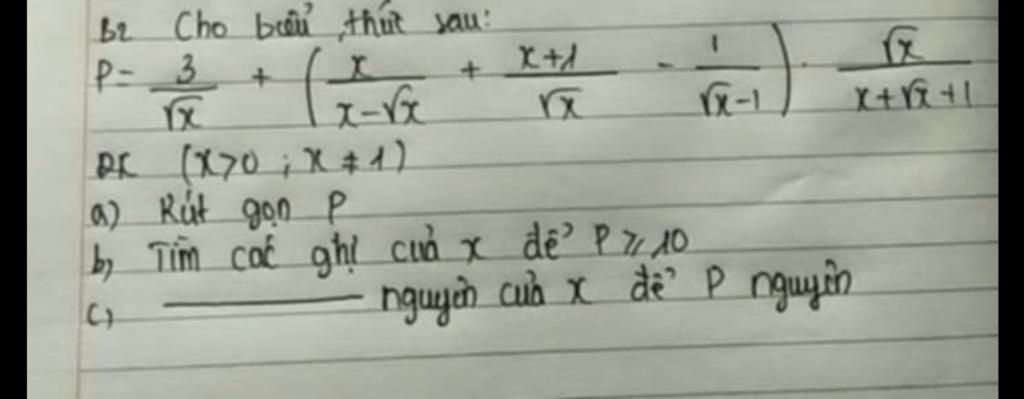 B2 Cho biểu thức sau:
P = 3/√x + (x/(x-√x) + (x+1)/√x - 1/(√x-1)) . √x/(x+√x+1)
ĐK (x>0 ; x ≠ 1)
a) Rút gọn P
b) Tìm các ghị của x để P ⩾ 10
c) ——— nguyên của x để P nguyên